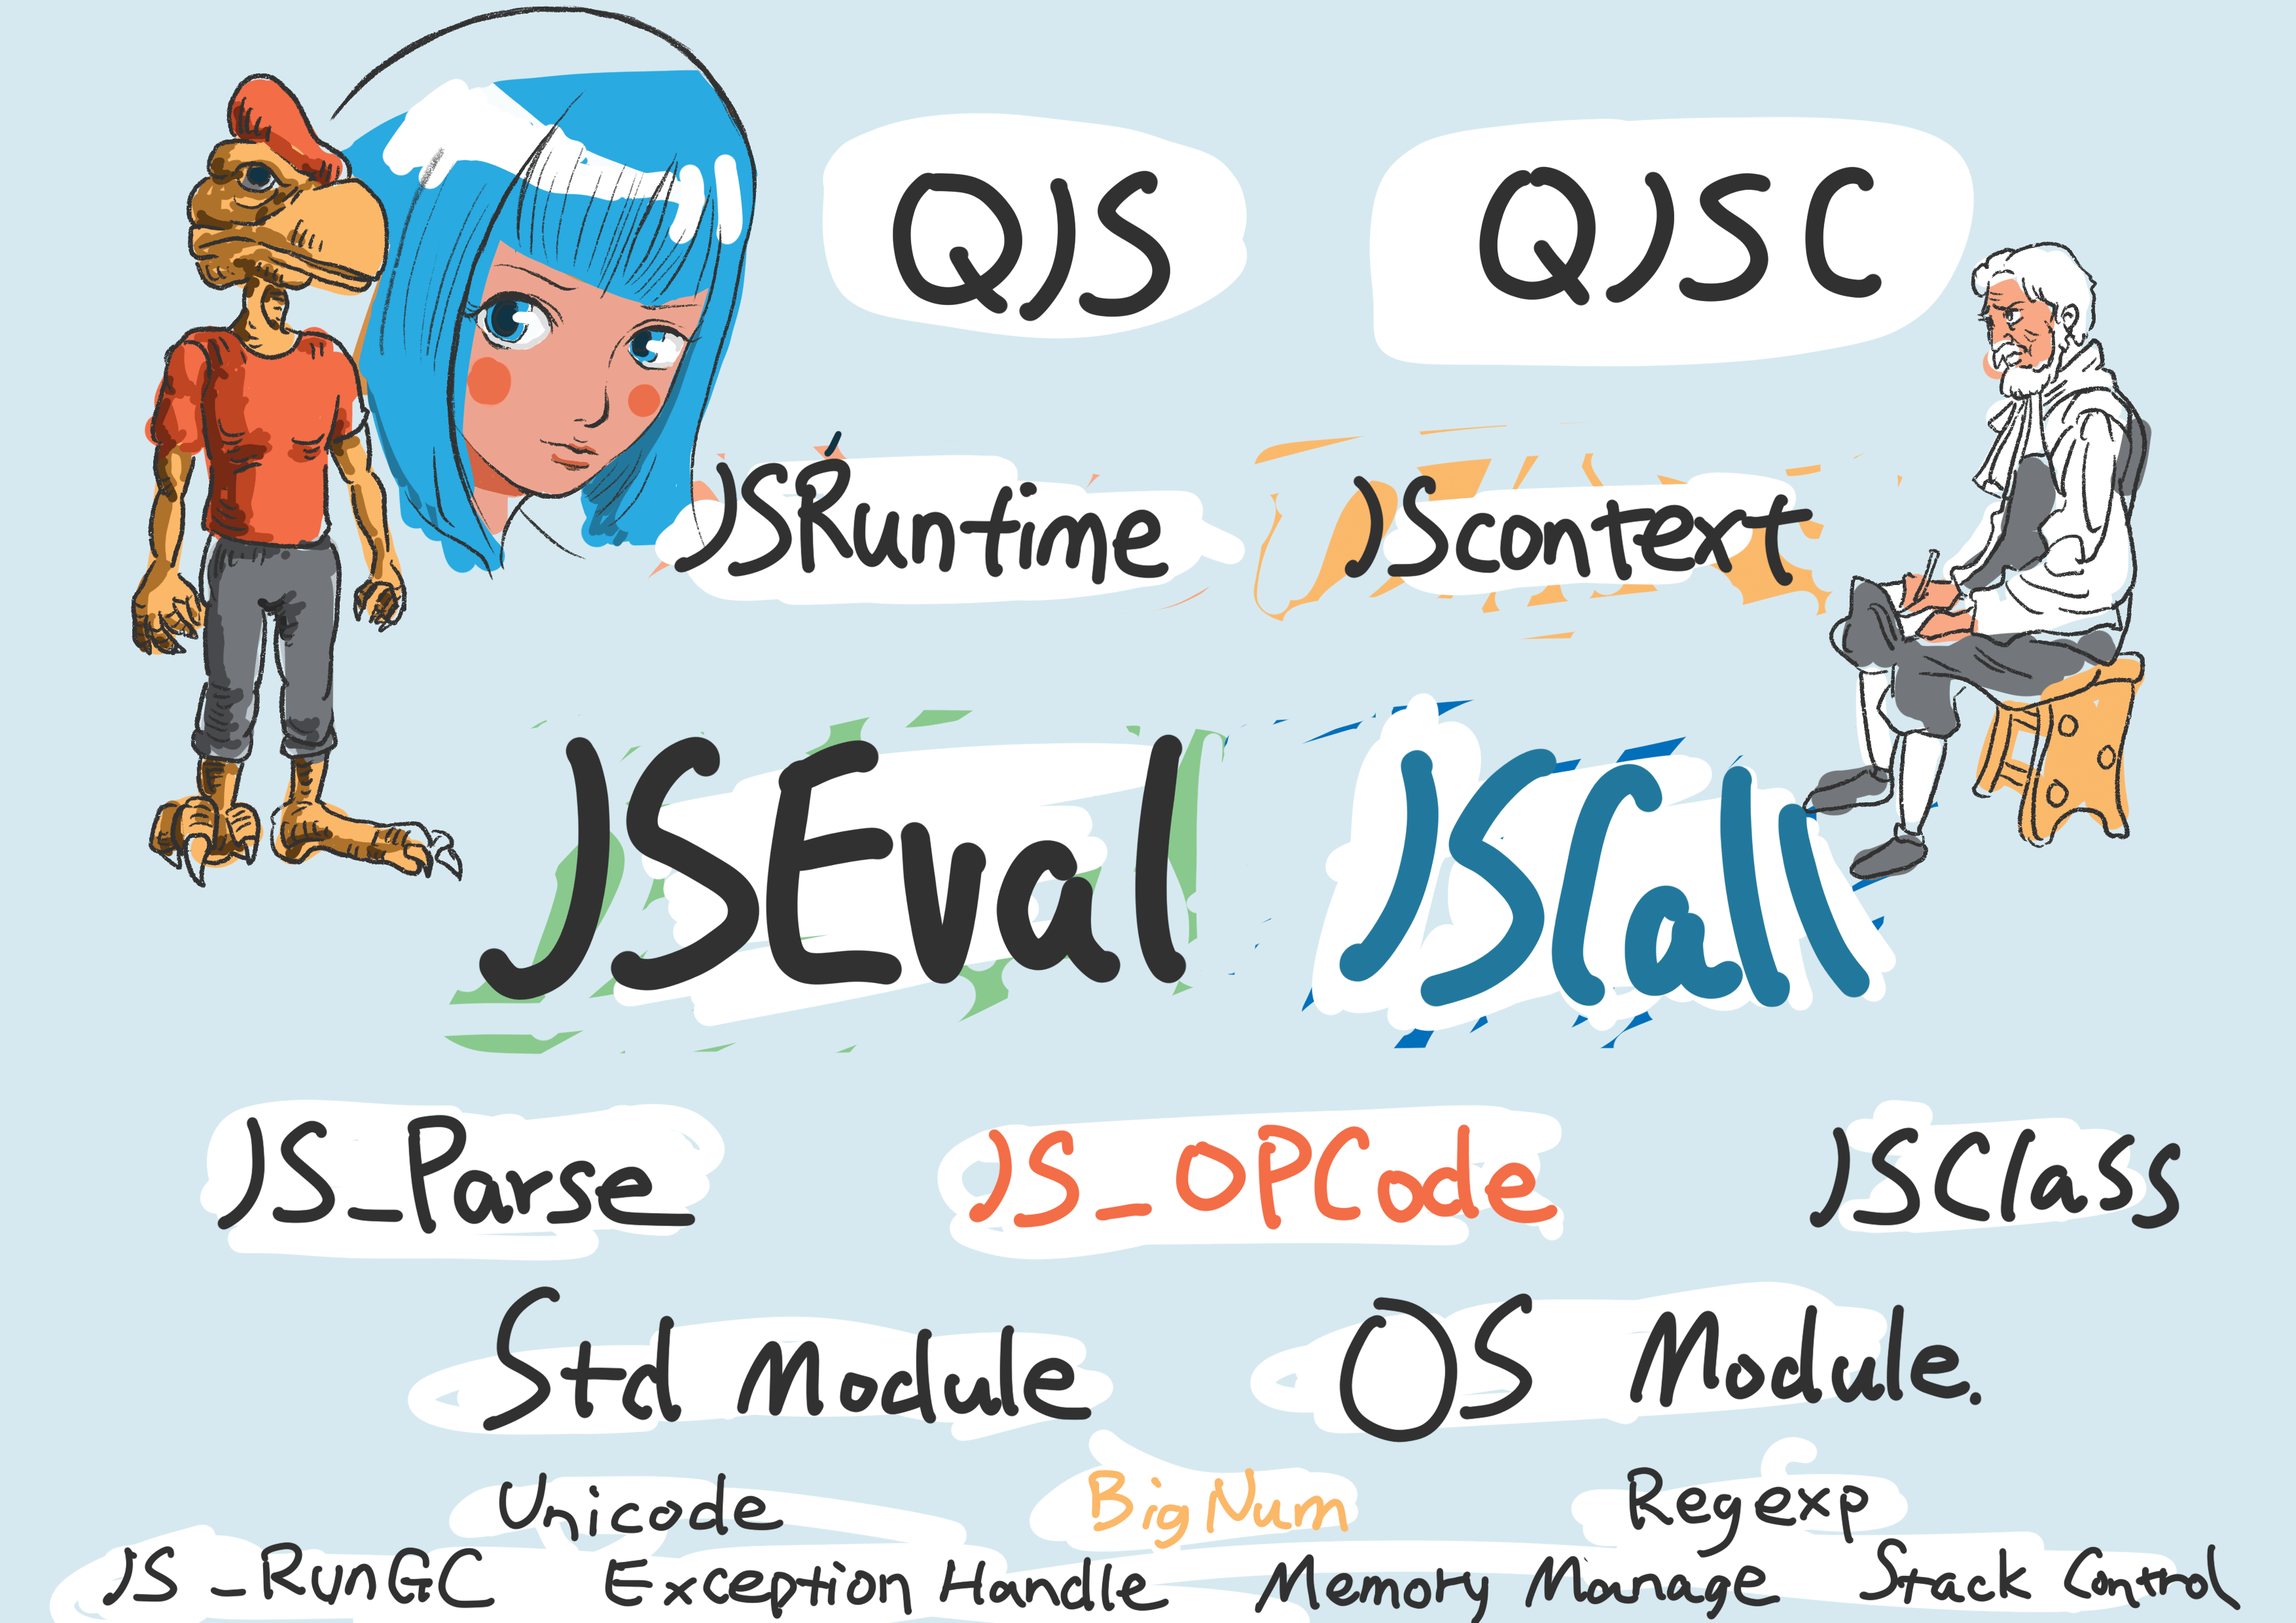 QJS QJSC
JSRuntime JScontext
JSEval JSCall
JS_Parse JS_OPCode JSClass
Std Module OS Module.
Unicode BigNum Regexp
JS_RunGC Exception Handle Memory Manage Stack Control